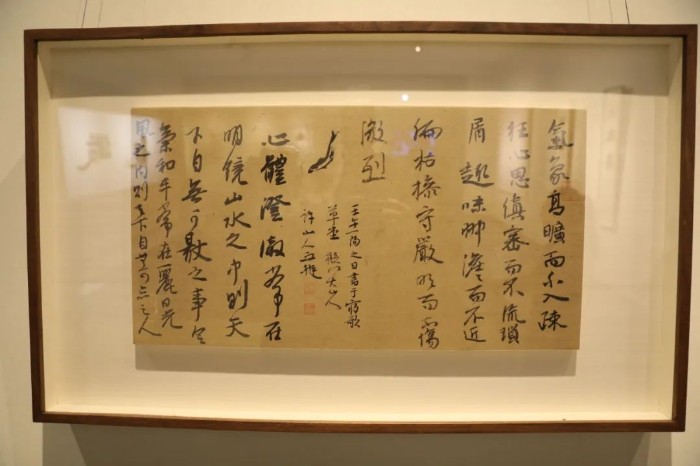 氣象高曠而不入疎
狂心思縝密而不流瑣
屑趣味冲澹而不近
偏枯操守嚴明而不傷
激烈
壬午一陽之日書于
草堂 山人
許山人
心體澄徹常在
明鏡止水之中則天
下自無可厭之事意
氣和平常在麗日光
風之內則天下自無可惡之人